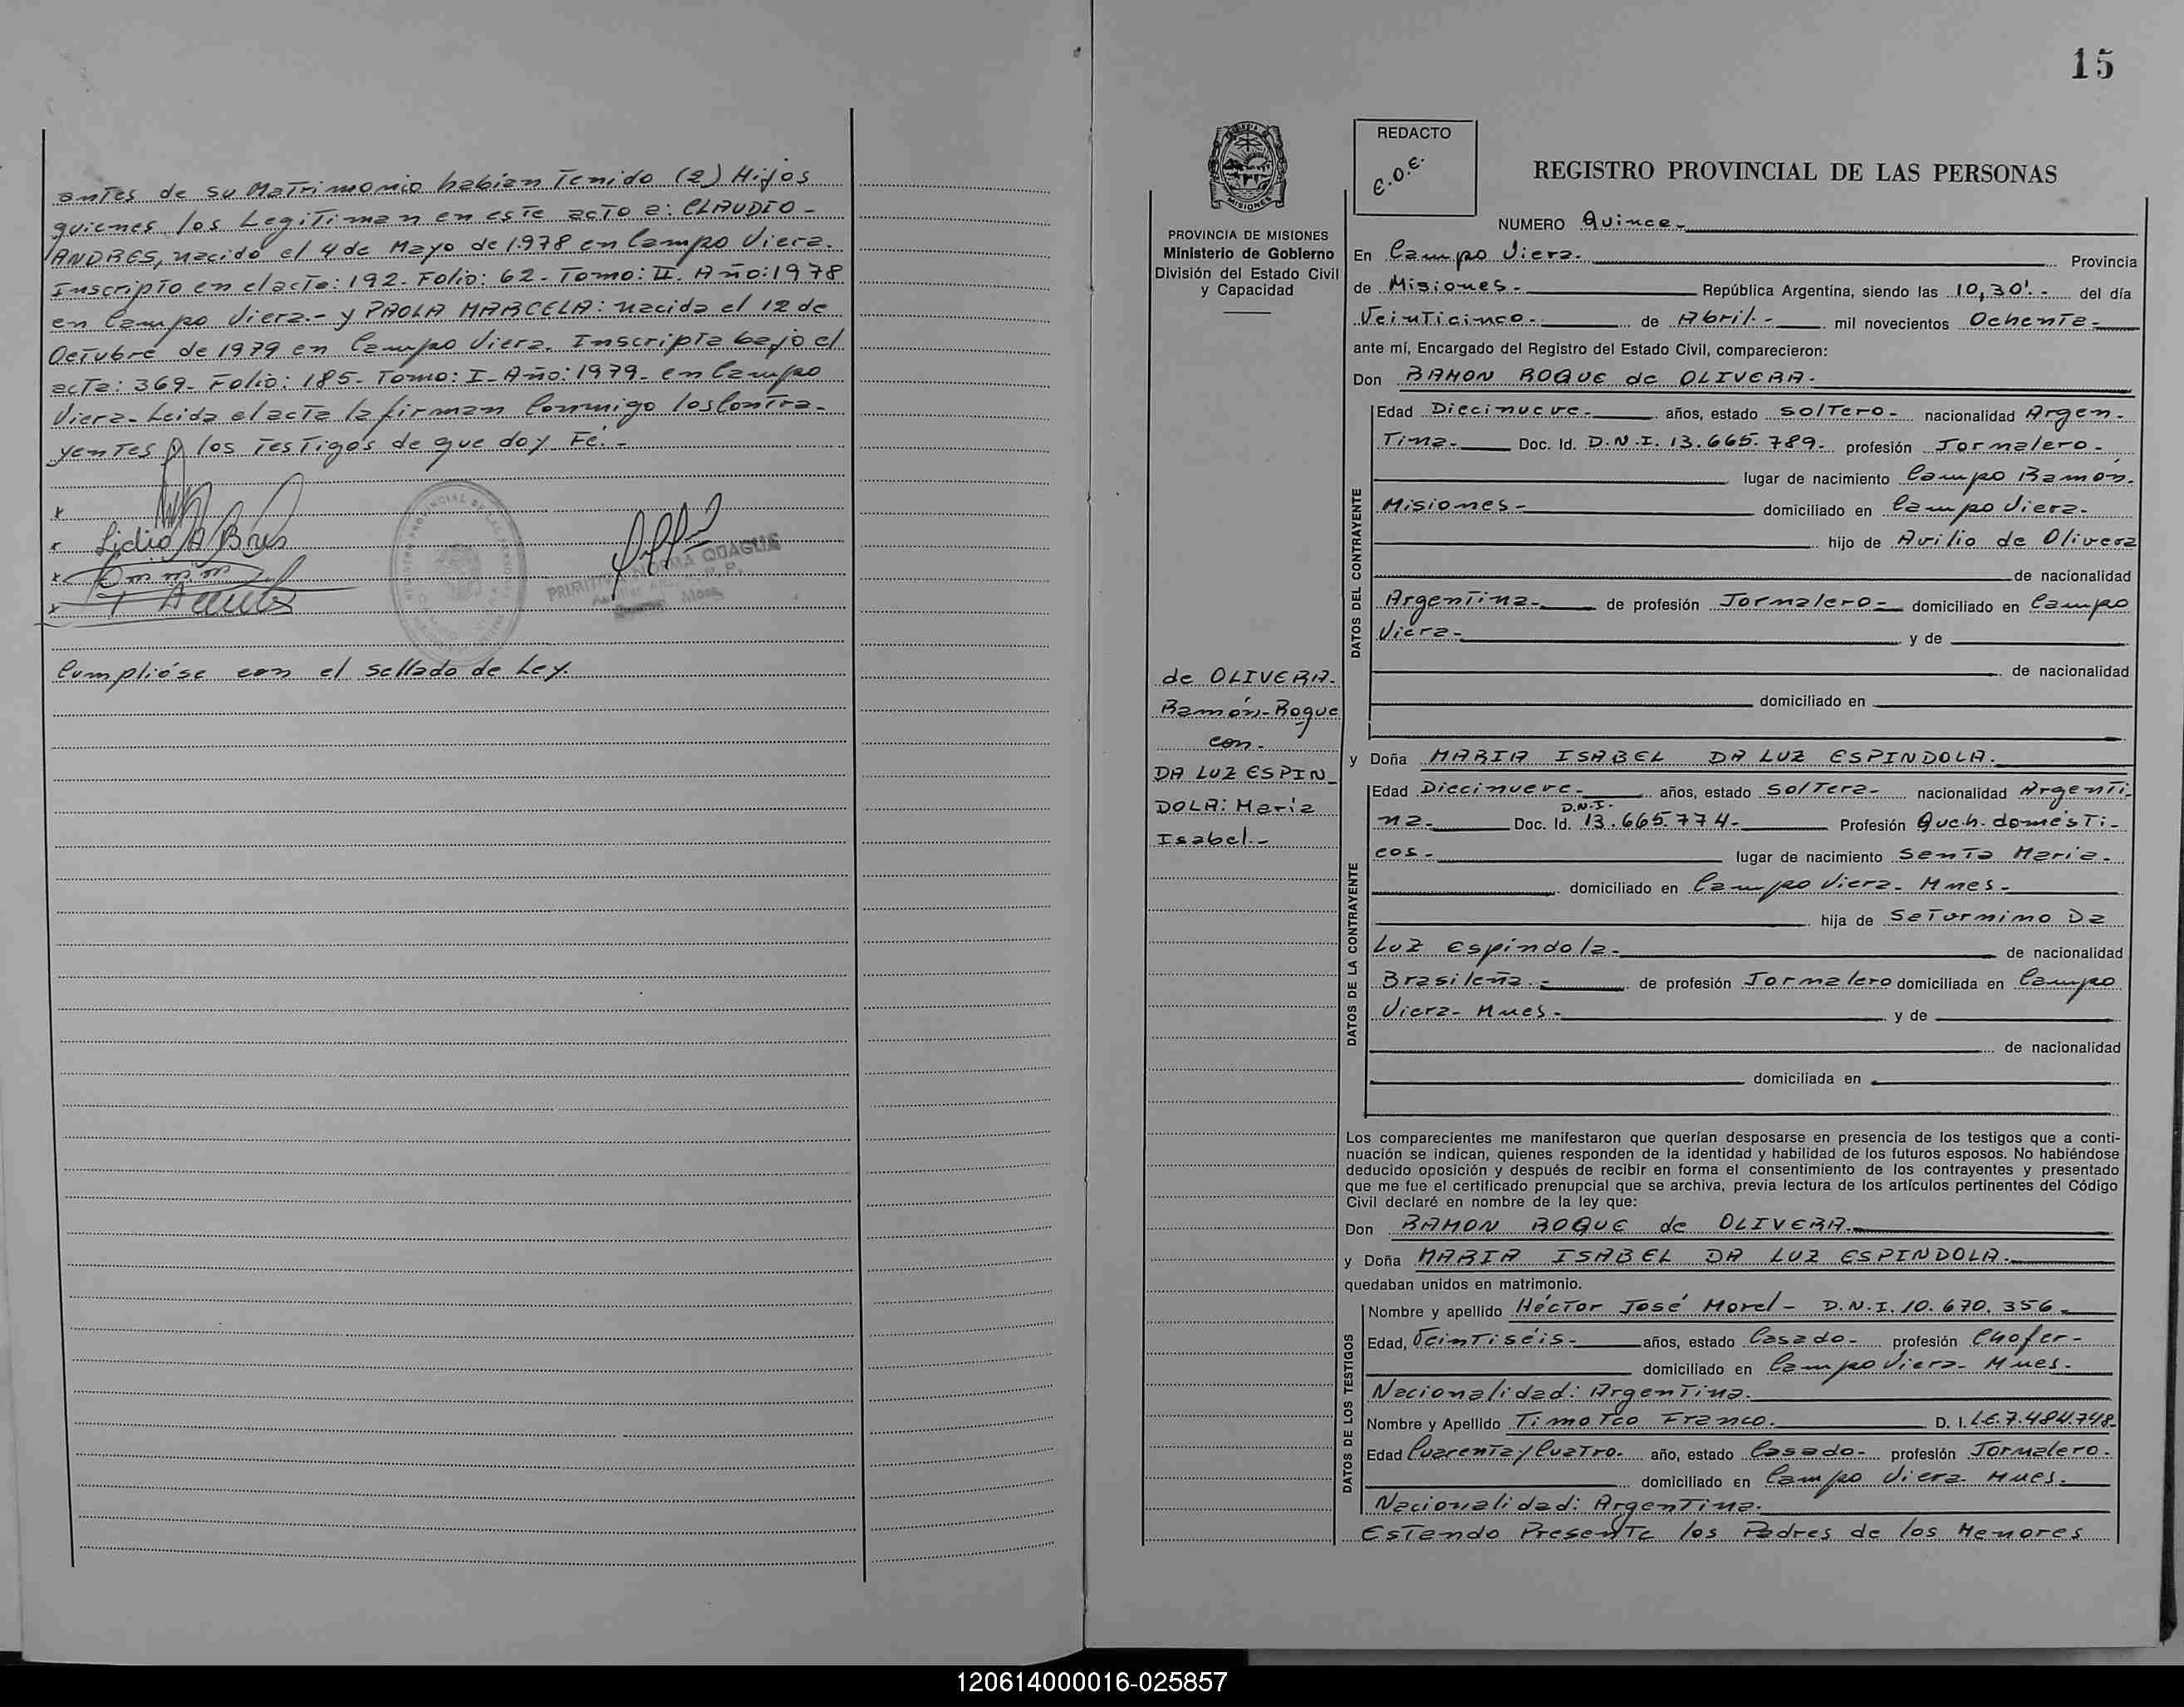 antes de su Matrimonio habian Tenido (2) Hijos
quienes los Legitiman en este acto a: CLAUDIO -
ANDRES, nacido el 4 de Mayo de 1.978 en Campo Viera.
Inscripto en el acta: 192. Folio: 62 - Tomo: II. Año: 1978
en Campo Viera.- y PAOLA MARCELA: nacida el 12 de
Octubre de 1979 en Campo Viera. Inscripta bajo el
acta: 369- Folio: 185- Tomo: I- Año: 1979- en Campo
Viera- Leida el acta la firman Conmigo los Contra-
yentes y los Testigos de que doy Fé.-
x
x
x
x
PRIMITIVA NORMA QUAGLIA
Cumplióse con el sellado de Ley.
15
PROVINCIA DE MISIONES
Ministerio de Gobierno
División del Estado Civil
y Capacidad
de OLIVERA.
Ramón-Roque
con-
DA LUZ ESPIN_
DOLA: María
Isabel.-
REDACTO
E.O.E.
REGISTRO PROVINCIAL DE LAS PERSONAS
NUMERO Quince-
En Campo Viera. Provincia
de Misiones.- República Argentina, siendo las 10,30'.- del día
Veinticinco- de Abril.- mil novecientos Ochenta-
ante mí, Encargado del Registro del Estado Civil, comparecieron:
Don RAMON ROQUE de OLIVERA.
DATOS DEL CONTRAYENTE
Edad Diecinueve- años, estado solTero- nacionalidad Argen-
Tina- Doc. Id. D.N.I. 13.665.789- profesión Jornalero-
lugar de nacimiento Campo Ramón.
Misiones- domiciliado en Campo Viera-
hijo de Avilio de Olivera
de nacionalidad
Argentina- de profesión Jornalero- domiciliado en Campo
Viera- y de
de nacionalidad
domiciliado en
y Doña MARIA ISABEL DA LUZ ESPINDOLA.
DATOS DE LA CONTRAYENTE
Edad Diecinueve- años, estado solTera- nacionalidad Argenti-
na- Doc. Id. D.N.I- 13.665.774- Profesión Queh. domésTi-
cos- lugar de nacimiento Santa Maria-
domiciliado en Campo Viera- Mnes-
hija de Seturnimo Da
Luz Espindola- de nacionalidad
Brasileña.- de profesión Jornalero domiciliada en Campo
Viera- Mnes- y de
de nacionalidad
domiciliada en
Los comparecientes me manifestaron que querían desposarse en presencia de los testigos que a conti-
nuación se indican, quienes responden de la identidad y habilidad de los futuros esposos. No habiéndose
deducido oposición y después de recibir en forma el consentimiento de los contrayentes y presentado
que me fue el certificado prenupcial que se archiva, previa lectura de los artículos pertinentes del Código
Civil declaré en nombre de la ley que:
Don RAMON ROQUE de OLIVERA-
y Doña MARIA ISABEL DA LUZ ESPINDOLA-
quedaban unidos en matrimonio.
DATOS DE LOS TESTIGOS
Nombre y apellido Héctor José Morel - D.N.I. 10.670.356-
Edad, Veintiséis- años, estado Casado- profesión Chofer-
domiciliado en Campo Viera- Mnes-
Nacionalidad: Argentina.
Nombre y Apellido Timoteo Franco. D. I. L.E. 7.484.748-
Edad Cuarenta y Cuatro- año, estado Casado- profesión Jornalero-
domiciliado en Campo Viera- Mnes.-
Nacionalidad: Argentina.
Estando Presente los Padres de los Menores
120614000016-025857